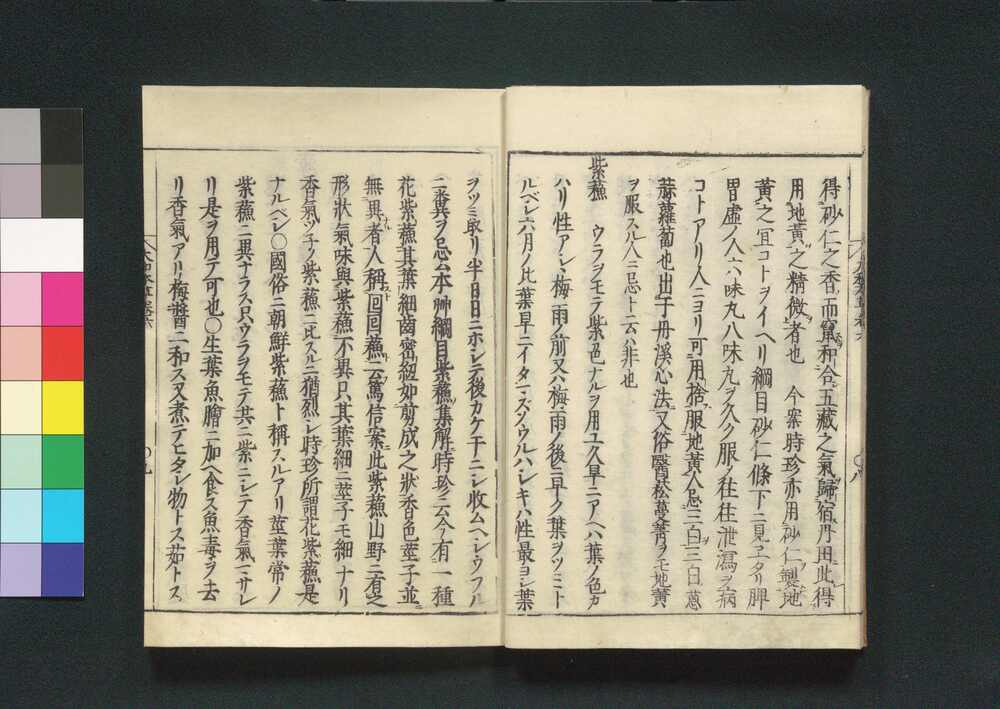 得砂仁之香而竄和合五藏之氣歸宿丹田此得
用地黃之精微者也　今案時珍亦用砂仁製地
黃之宜コトヲイヘリ綱目砂仁條下ニ見ヱタリ脾
胃虛ノ人六味丸八味丸ヲ久ク服ノ往往泄瀉ヲ病
コトアリ人ニヨリ可用捨服地黃人忌三白三白葱
蒜蘿蔔也出于丹溪心法又俗醫菘蔓菁ヲモ地黃
ヲ服スル人ニ忌ト云ハ非也
紫蘓　ウラヲモテ紫色ナルヲ用ユ久旱ニアヘハ葉ノ色カ
ハリ性アシヽ梅雨ノ前又ハ梅雨ノ後ニ早ク葉ヲツミト
ルベシ六月ノ比葉早ニイタマズシウルハシキハ性最ヨシ葉
ヲツミ取リ半日日ニホシテ後カケ干ニシ收ムヘシウフル
ニ糞ヲ忌ム本艸綱目紫蘓集解時珍云今有一種
花紫蘓其葉細齒密紐如剪成之狀香色莖子並
無異者人稱回回蘓云篤信案此紫蘓山野ニ有之
形狀氣味與紫蘓不異只其葉細ニ莖子モ細ナリ
香氣ツ子ノ紫蘓ニ比スルニ猶烈シ時珍所謂花紫蘓是
ナルベシ〇國俗ニ朝鮮紫蘓ト稱スルアリ莖葉常ノ
紫蘓ニ異ナラス只ウラヲモテ共ニ紫ニシテ香氣マサレ
リ是ヲ用テ可也〇生葉魚膾ニ加ヘ食ス魚毒ヲ去
リ香氣アリ梅醬ニ和ス又煮テヒタシ物トス茹トス